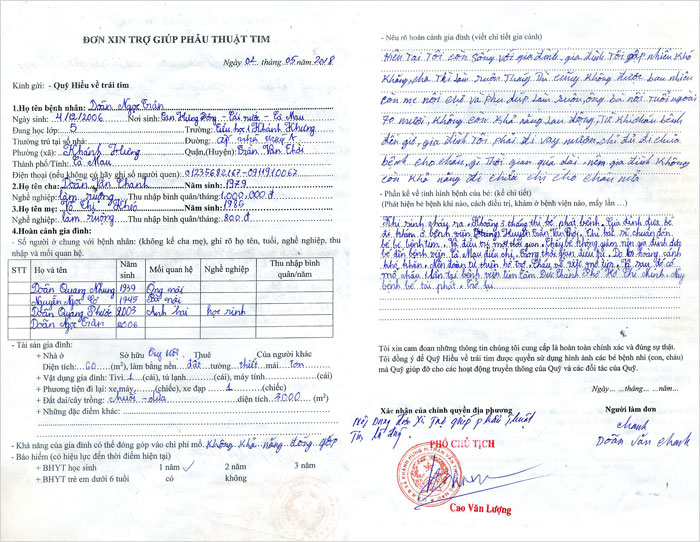 ĐƠN XIN TRỢ GIÚP PHẪU THUẬT TIM
Ngày 02 tháng 05 năm 2018
Kính gửi: - Quỹ Hiểu về trái tim
1.Họ tên bệnh nhân: Doãn Ngọc Trân
Ngày sinh: 4/12/2006 Nơi sinh: Tân Hưng Đông - Cái nước - Cà Mau
Đang học lớp: 5 Trường: Tiểu học 1 Khánh Hưng
Thường trú tại số nhà: Đường: ấp
Phường (xã): Khánh Hưng Quận,(Huyện): Trần Văn Thời
Thành phố/Tỉnh: Cà Mau
Điện thoại (nếu không có hãy ghi số người quen): 01235682167-0911910062
2.Họ tên cha: Doãn Văn Thanh Năm sinh: 1979
Nghề nghiệp: làm ruộng Thu nhập bình quân/tháng: 1,000,000 đ
3.Họ tên mẹ: Võ Thị Năm sinh: 1986
Nghề nghiệp: làm ruộng Thu nhập bình quân/tháng: 800.đ
4.Hoàn cảnh gia đình:
- Số người ở chung với bệnh nhân: (không kể cha mẹ), ghi rõ họ tên, tuổi, nghề nghiệp, thu nhập và mối quan hệ.
STT Họ và tên Năm sinh Mối quan hệ Nghề nghiệp Thu nhập bình quân/năm
Doãn Quang Nhung 1939 Ông nội
Nguyễn Ngọc 1945 Bà nội
Doãn Quang Phước 2003 Anh hai học sinh
Doãn Ngọc Trân 2006
- Tài sản gia đình:
+ Nhà ở Sở hữu Thuê Của người khác
Diện tích: 60 (m²), làm bằng nền: đất tường thiết mái Ton
+ Vật dụng gia đình: Tivi. 1 (cái), tủ lạnh (cái), máy tính (cái)
+ Phương tiện đi lại: xe máy, (chiếc), xe đạp 1 (chiếc)
+ Đất đai/cây trồng: chuối - dừa diện tích 3000 (m²)
+ Những đặc điểm khác:
- Khả năng của gia đình có thể đóng góp vào chi phí mổ. Không khả năng đóng góp
- Bảo hiểm (có hiệu lực đến thời điểm hiện tại)
+ BHYT học sinh 1 năm ✓ 2 năm 3 năm
+ BHYT trẻ em dưới 6 tuổi có không
- Nêu rõ hoàn cảnh gia đình (viết chi tiết gia cảnh)
Hiện Tại Tôi con sống với gia đình. gia đình Tôi gặp nhiều khó
khăng, cha Thì làm mướn Thấy Thì cũng không được bao nhiêu
con mẹ nội chợ và phụ dụp làm mướn, ông bà nội Tuổi ngoài
70 mươi, không con khả năng lao động, Từ khi cháu bệnh
đến giờ, gia đình Tôi phải đi vay mươm, chỉ đủ đi chửa
bệnh cho cháu, vì Thời gian quá dài nên gia đình không
còn khả năng để chửa chị cho cháu nửa
- Phần kể về tình hình của bé: (kể chi tiết)
(Phát hiện bé bệnh khi nào, cách điều trị, khám ở bệnh viện nào, mấy lần …)
Khi sinh cháy ra. Khoảng 3 tháng thì bé. phát bệnh. Gia đình đưa bé
đi khám ở bệnh viện Huyện Trần Văn Thời, Thì bác sĩ chuẩn đoán
bé bị bệnh tim. Và điều trị một thời gian. Thấy bé không giảm nên gia đình đưa
bé đến bệnh viện Cà Mau điều trị, Trong thời gian điều trị. Do hoàn cảnh
khó khăn. Nên đoàn từ thiện hổ trợ. Cháu về việc mổ tim. Và sau đó có
mổ cháu lần tại bệnh viện tim Tâm Đức Thành Phố Hồ Chí Minh. Nay
bệnh bé tái phát. Trở lại
Tôi xin cam đoan những thông tin chúng tôi cung cấp là hoàn toàn chính xác và đúng sự thật.
Tôi đồng ý để Quỹ Hiểu về trái tim được quyền sử dụng hình ảnh các bé bệnh nhi (con, cháu)
mà Quỹ giúp đỡ cho các hoạt động truyền thông của Quỹ và các đối tác của Quỹ.
Ngày… tháng… năm
Xác nhận của chính quyền địa phương Người làm đơn
Nội Dung đơn Xi Trợ giúp phẩu Thuật
Tim, là đúng.
PHÓ CHỦ TỊCH
Thanh
Doãn Văn Thanh
Cao Văn Lượng